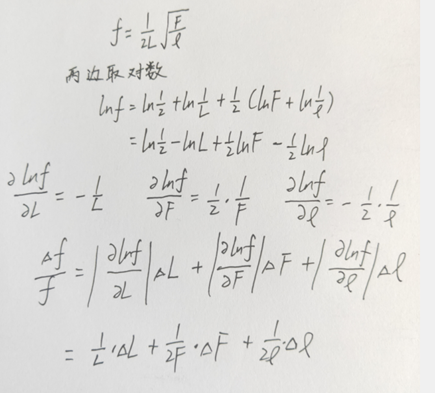 f = 1/2L √F/ρ
两边取对数
lnf = ln1/2 + ln1/L + 1/2 (lnF + ln1/ρ)
= ln1/2 - lnL + 1/2 lnF - 1/2 lnρ
∂lnf/∂L = -1/L ∂lnf/∂F = 1/2 · 1/F ∂lnf/∂ρ = -1/2 · 1/ρ
Δf/f = |∂lnf/∂L| ΔL + |∂lnf/∂F| ΔF + |∂lnf/∂ρ| Δρ
= 1/L · ΔL + 1/2F · ΔF + 1/2ρ · Δρ